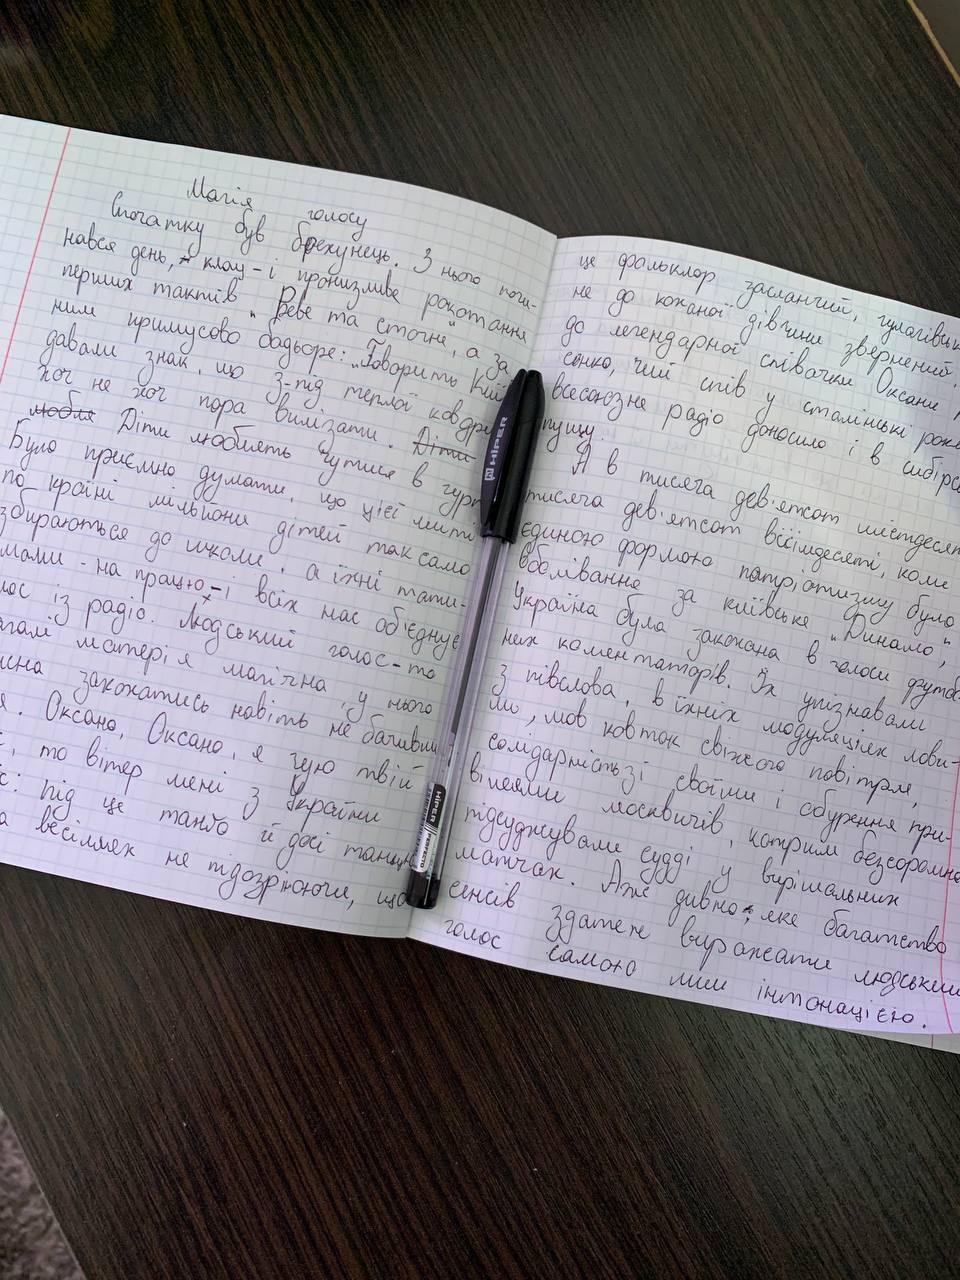 Магія голосу
Спочатку був брехунець. З нього почи-
нався день, клац – і пронизливе рокотання
перших тактів "Реве та стогне", а за
ним примусово бадьоре: „Говорить Київ
давали знак, що з-під теплої ковдри
хоч не хоч пора вилізати. Діти
любля Діти люблять чутися в гурт
Було приємно думати, що цієї миті
по країні мільйони дітей так само
збираються до школи, а їхні тати-
мами – на працю – і всіх нас об'єднує
лос із радіо. Людський голос – то
загалі матерія магічна, у нього
закохатись навіть не бачивши
я. Оксано, Оксано, я чую твій
то вітер мені з України
с: під це танго й досі танцю
весіллях не підозрюючи, що
це фольклор засланчий, гулагівськ
не до коханої дівчини звернений,
до легендарної співачки Оксани
сенко, чий спів у сталінські роки
всесоюзне радіо доносило і в сибірс
пущу.
А в тисяча дев'ятсот шістдесят
тисяча дев'ятсот вісімдесяті, коли
єдиною формою патріотизму було
вболівання за київське „Динамо",
Україна була закохана в голоси футбо
них коментаторів. Їх упізнавали
з півслова, в їхніх модуляціях лови-
ли, мов ковток свіжого повітря,
солідарність зі своїми і обурення при-
вілеями москвичів, котрим безсоромно
підсуджували судді у вирішальних
матчах. Аж дивно, яке багатство
сенсів здатен виражати людський
голос самою лиш інтонацією.
HIPER
HIPER
PERFECTO